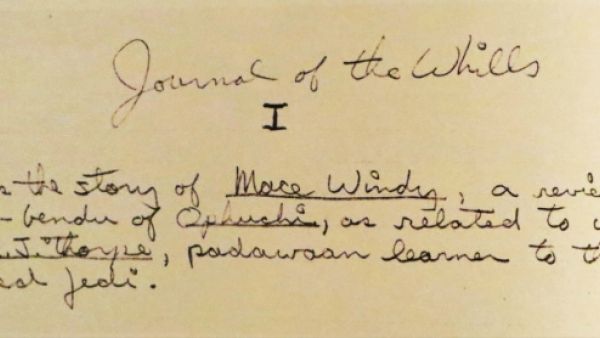 Journal of the Whills
I
the story of Mace Windy, a
-bendu of Ophuchi, as related to
J. Thorpe, padawaan learner to
Jedi.